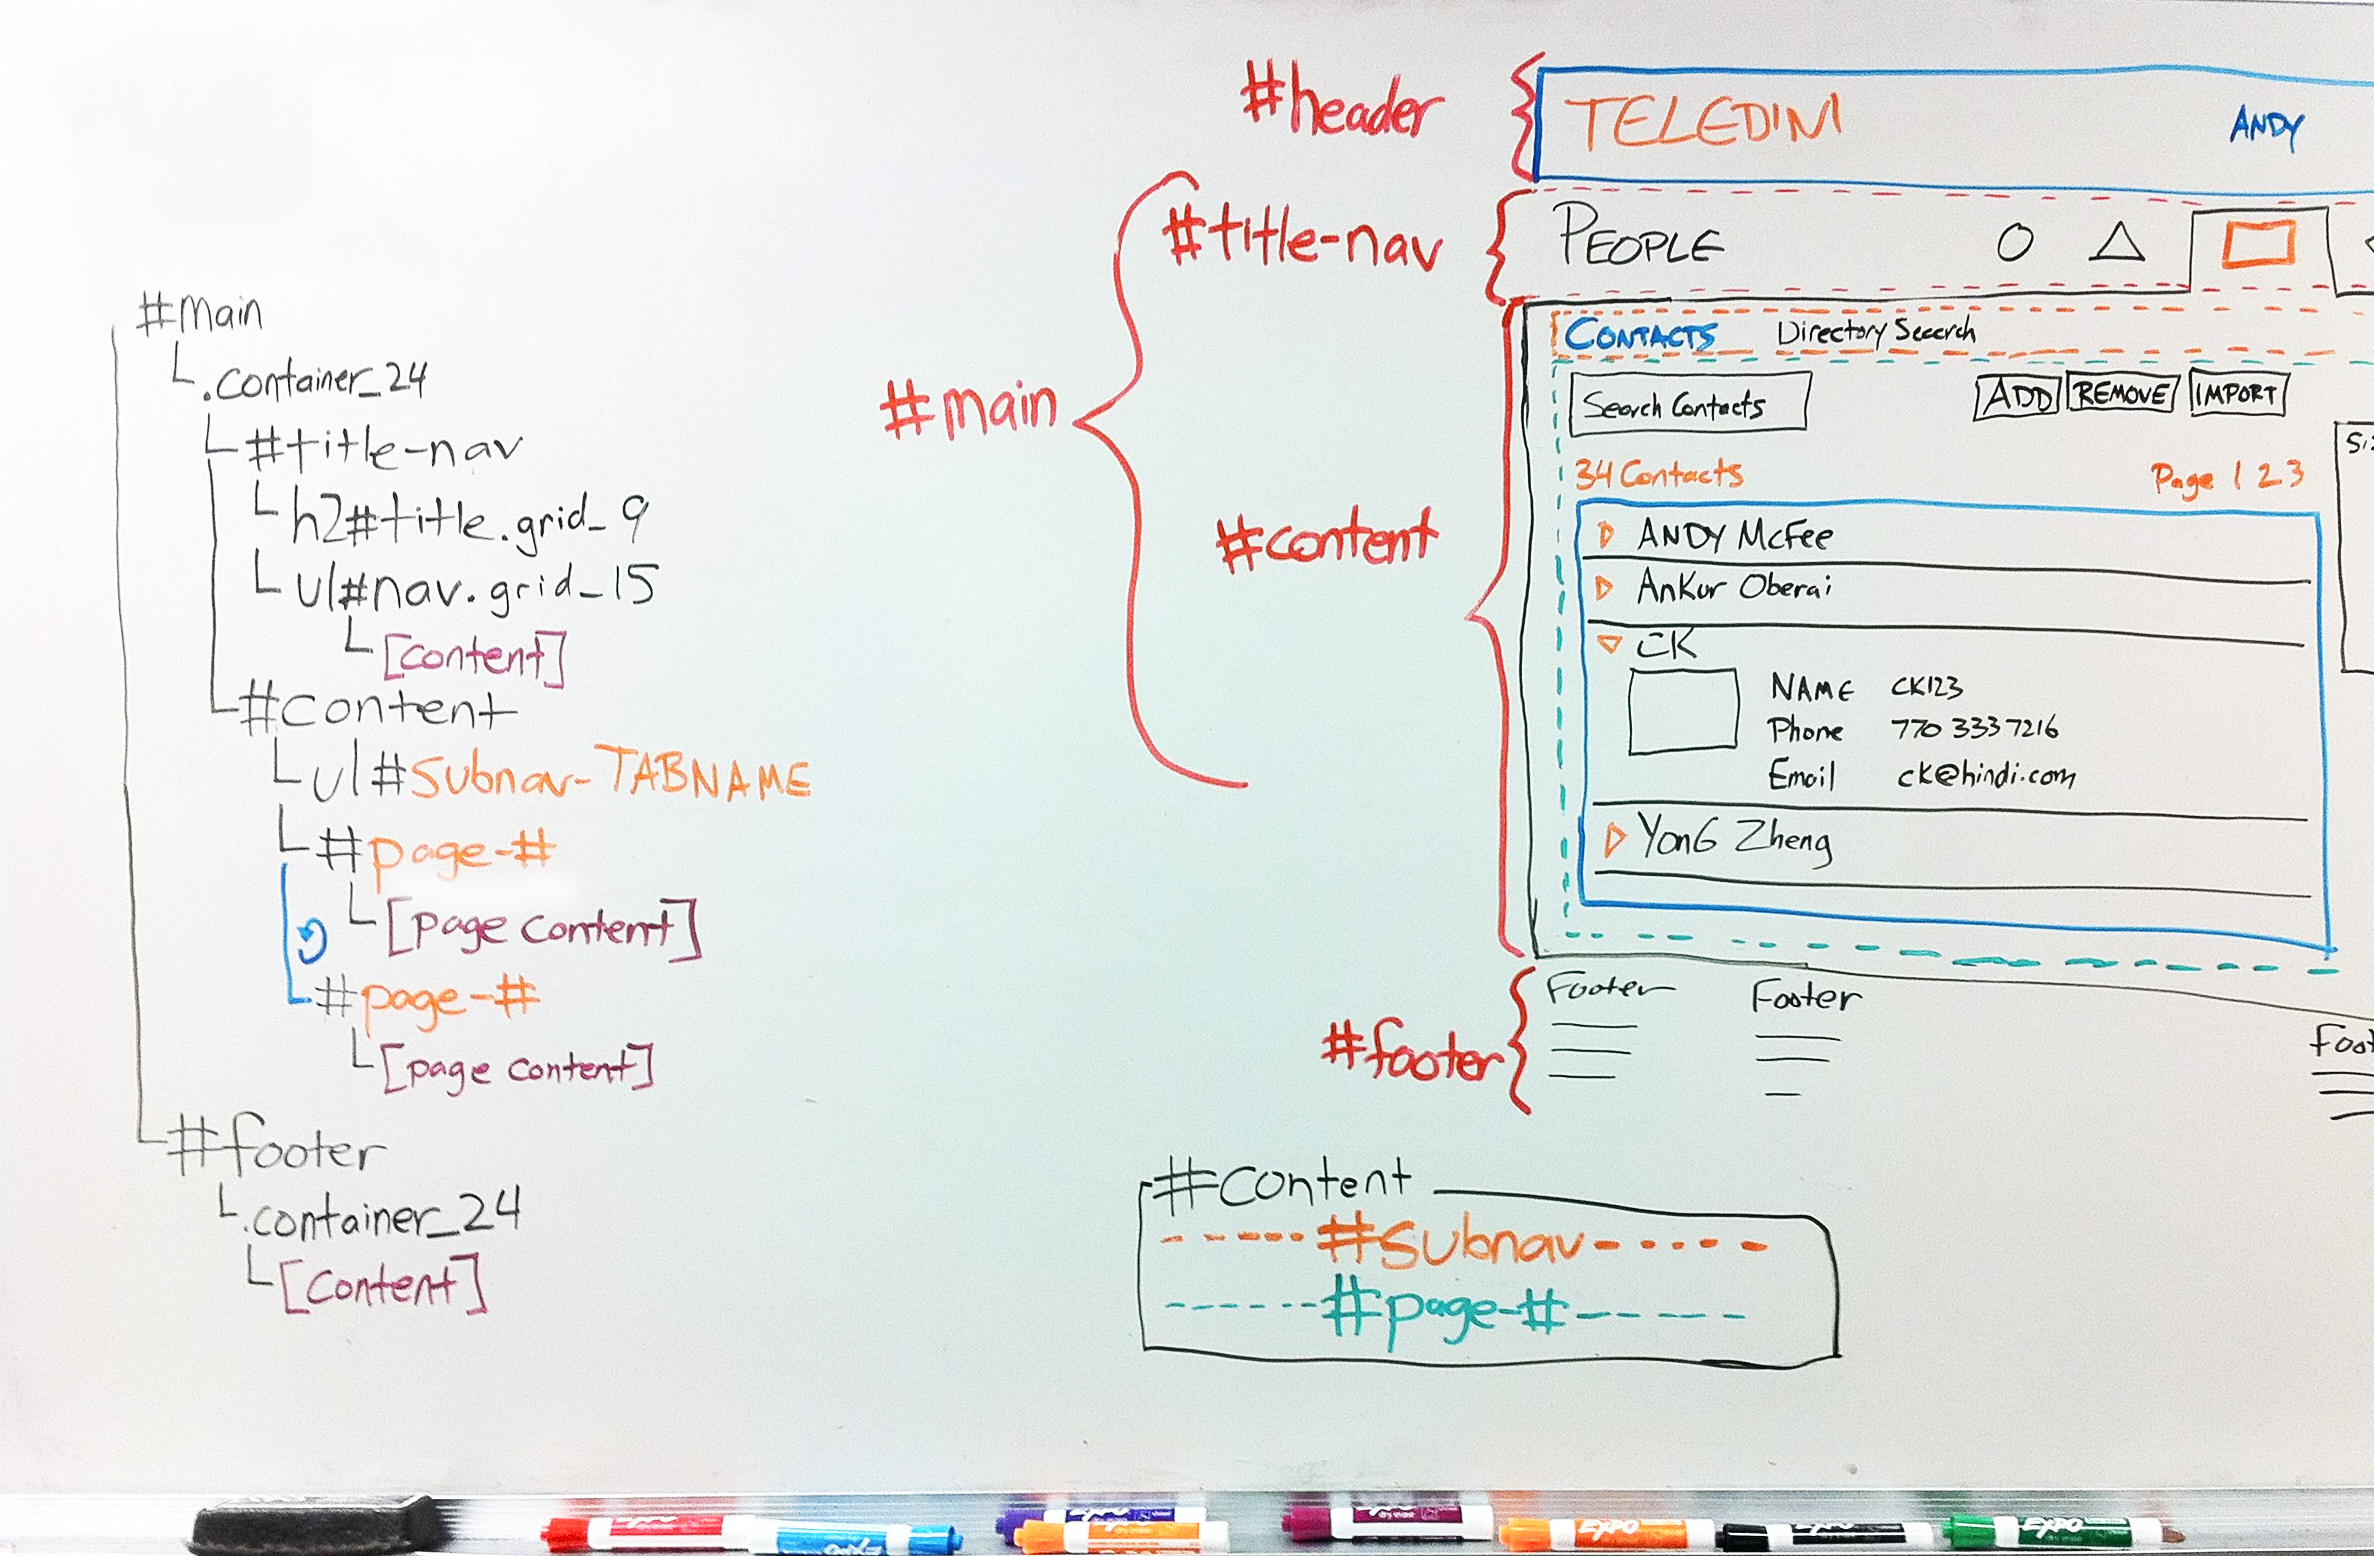 #main
.container_24
#title-nav
h2#title.grid_9
ul#nav.grid_15
[content]
#content
ul#subnav-TABNAME
#page-#
[page content]
#page-#
[page content]
#footer
.container_24
[content]
#header
#title-nav
#main
#content
#footer
TELEDINI
ANDY
PEOPLE
CONTACTS Directory Search
Search Contacts ADD REMOVE IMPORT
34 Contacts Page 1 2 3
ANDY McFee
AnKur Oberai
CK
NAME CK123
Phone 770 333 7216
Email ck@hindi.com
YonG Zheng
Footer Footer
#content
#subnav
#page-#
EXPO
EXPO